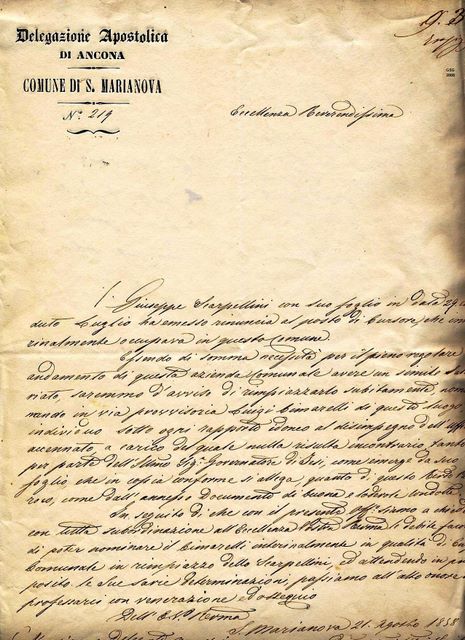 Delegazione Apostolica
DI ANCONA
COMUNE DI S. MARIANOVA
N.° 219
Eccellenza Reverendissima
Giuseppe Scarpellini con suo foglio in data 29
duto Luglio ha emesso rinuncia al posto di Cursore, che in
rinalmente occupava in questo Comune
Essendo di somma necessità per il pieno regolare
andamento di questa azienda Comunale avere un simile Sala
riato, saremmo d'avviso di rimpiazzarlo subitamente, nomi
nando in via provvisoria Luigi Cimarelli di questo luogo
individuo sotto ogni rapporto idoneo al disempegno dell'uff
accennato, a carico del quale nulla risulta incontrario, tanto
per parte dell'Illmo Sig. Governatore di Jesi, come emerge da suo
foglio che in copia conforme si allega, quanto di questo
roco, come dall'annesso Documento di buona e lodevole condotta
In seguito di che con il presente
con tutta subordinazione all'Eccellenza
di poter nominare il Cimarelli interinalmente in qualità di
Comunale in rimpiazzo dello Scarpellini, ed attendendo in pro
posito le Sue savie determinazioni, passiamo all'alto onore
professarci con venerazione ed ossequio
Dell'E. V. Rma
S. Marianova 21. agosto 1858